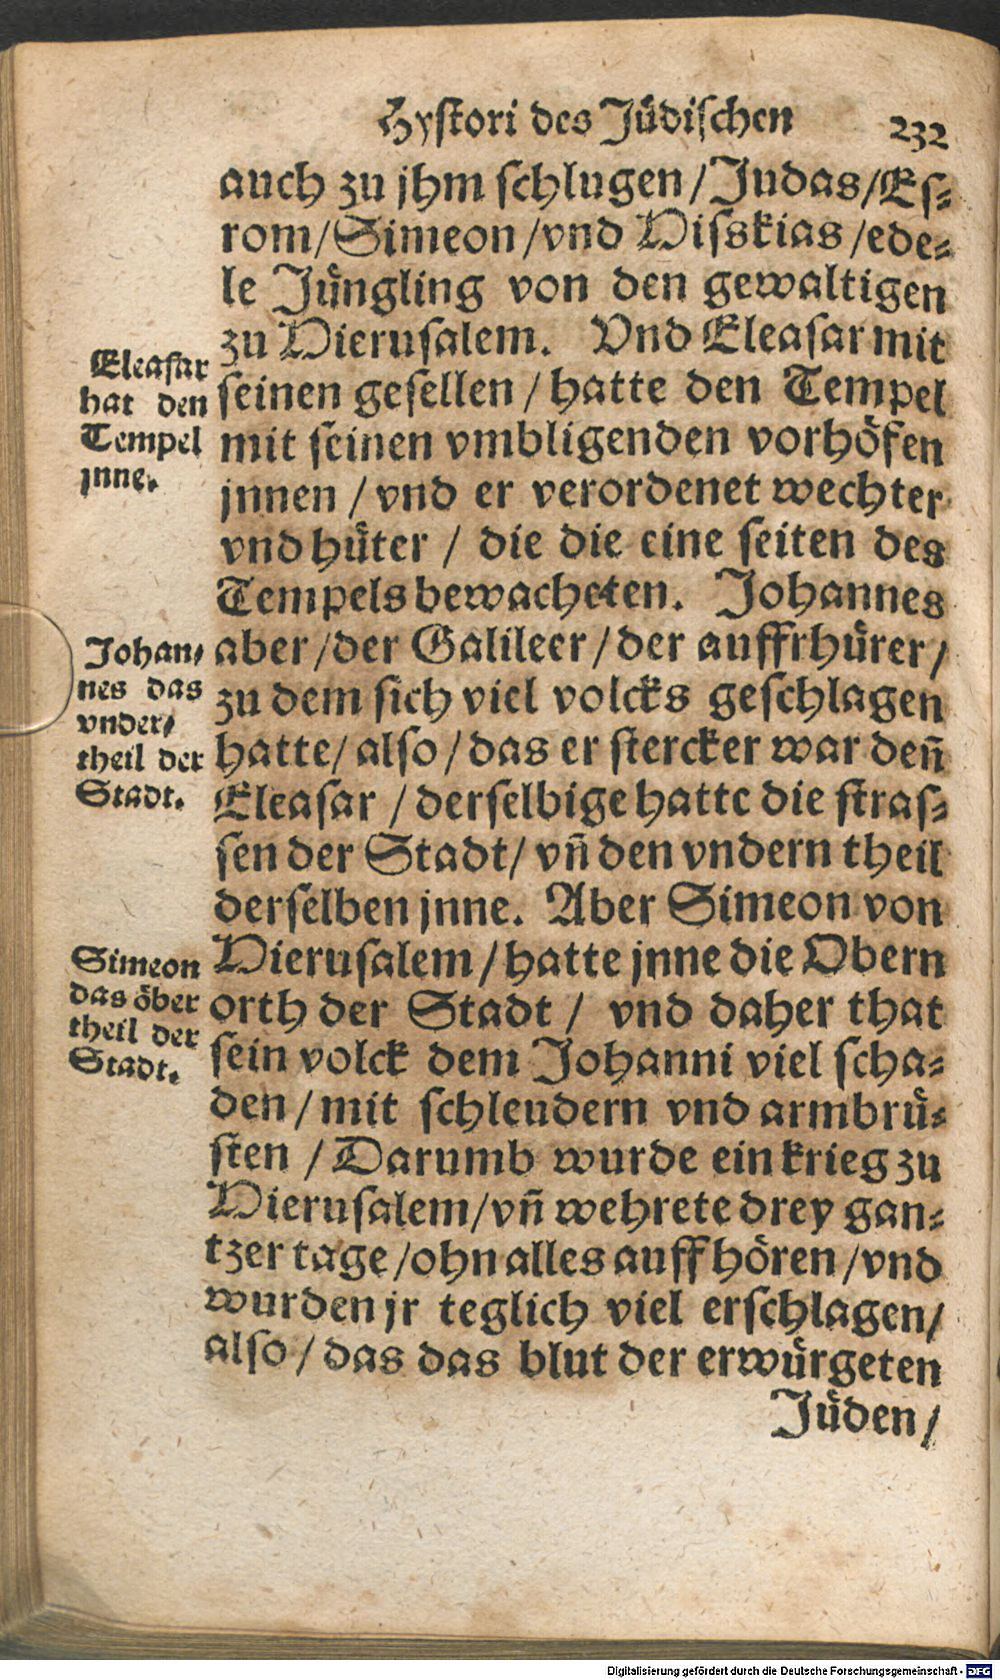 Hystori des Jüdischen
232
auch zu jhm schlugen / Judas / Es-
rom / Simeon / vnd Hisskias / ede-
le Jüngling von den gewaltigen
zu Hierusalem. Vnd Eleasar mit
seinen gesellen / hatte den Tempel
mit seinen vmbligenden vorhöfen
jnnen / vnd er verordenet wechter
vnd hüter / die die eine seiten des
Tempels bewacheten. Johannes
aber / der Galileer / der auffrhürer /
zu dem sich viel volcks geschlagen
hatte / also / das er stercker war deñ
Eleasar / derselbige hatte die stras-
sen der Stadt / vñ den vndern theil
derselben jnne. Aber Simeon von
Hierusalem / hatte jnne die Obern
orth der Stadt / vnd daher that
sein volck dem Johanni viel scha-
den / mit schleudern vnd armbrü-
sten / Darumb wurde ein krieg zu
Hierusalem / vñ wehrete drey gan-
tzer tage / ohn alles auffhören / vnd
wurden jr teglich viel erschlagen /
also / das das blut der erwürgeten
Jüden /
Eleasar
hat den
Tempel
jnne.
Johan-
nes das
vnder-
theil der
Stadt.
Simeon
das öber
theil der
Stadt.
Digitalisierung gefördert durch die Deutsche Forschungsgemeinschaft - DFG